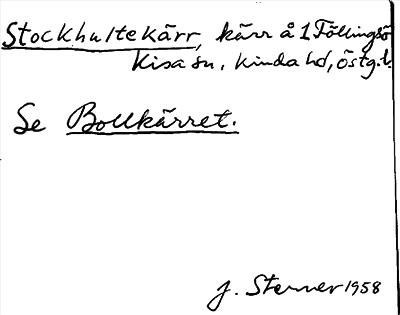 Stockhultekärr, kärr å 1 Föllingsö
Kisa sn, Kinda hd, Östg.l.
Se Bollkärret.
J. Sterner 1958